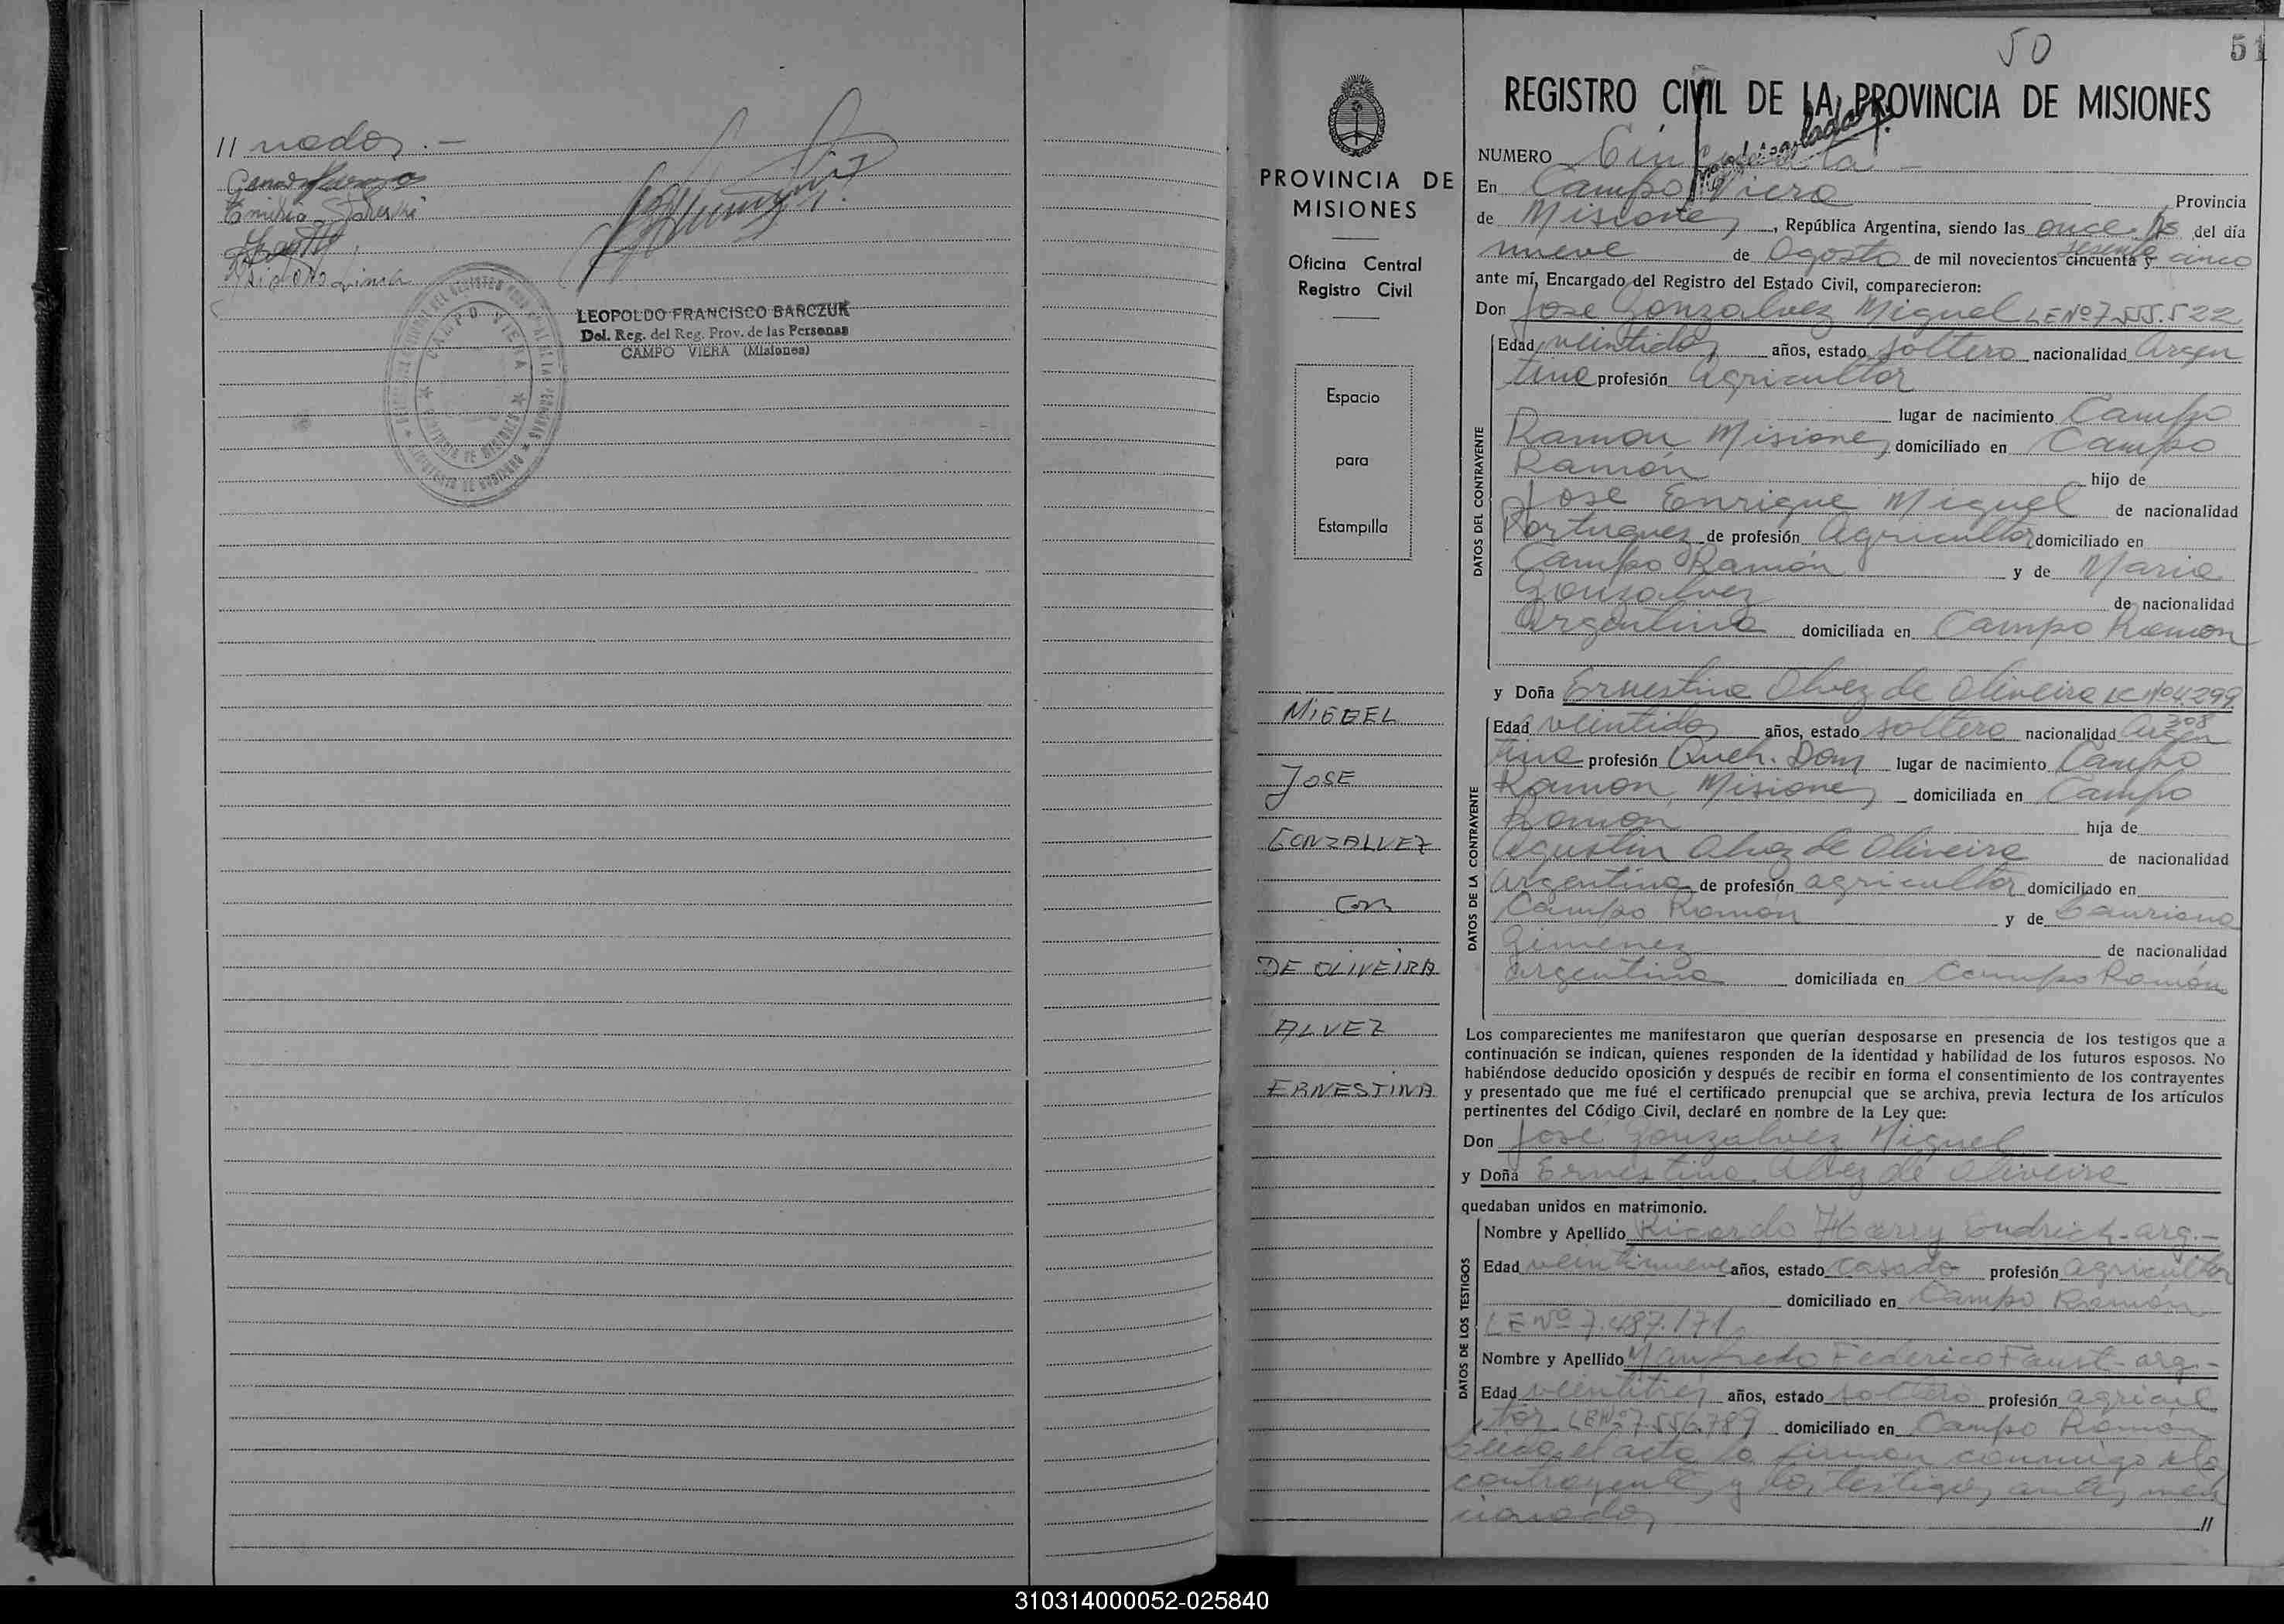 // nados.-
Emilia Stareski
LEOPOLDO FRANCISCO BARCZUK
Del. Reg. del Reg. Prov. de las Personas
CAMPO VIERA (Misiones)
CAMPO VIERA
50
51
REGISTRO CIVIL DE LA PROVINCIA DE MISIONES
PROVINCIA DE
MISIONES
Oficina Central
Registro Civil
Espacio
para
Estampilla
MIGUEL
JOSE
GONZALVEZ
Con
DE OLIVEIRA
ALVEZ
ERNESTINA
NUMERO Cincuenta -
En Campo Viera Provincia
de Misiones, República Argentina, siendo las once hs del día
nueve de Agosto de mil novecientos cincuenta y sesenta cinco
ante mí, Encargado del Registro del Estado Civil, comparecieron:
Don Jose Gonzalvez Miguel LE Nº 7.555.522
DATOS DEL CONTRAYENTE
Edad veintidos años, estado soltero nacionalidad Argen
tina profesión Agricultor
lugar de nacimiento Campo
Ramon Misiones, domiciliado en Campo
Ramón hijo de
Jose Enrique Miguel de nacionalidad
Portuguez de profesión Agricultor domiciliado en
Campo Ramón y de Maria
Gonzalvez de nacionalidad
Argentina domiciliada en Campo Ramon
y Doña Ernestina Alvez de Oliveira LC Nº 4.299.
308
DATOS DE LA CONTRAYENTE
Edad veintidos años, estado soltera nacionalidad Argen
tina profesión Queh. Dom lugar de nacimiento Campo
Ramon, Misiones domiciliada en Campo
Ramon hija de
Agustin Alvez de Oliveira de nacionalidad
Argentina de profesión agricultor domiciliado en
Campo Ramon y de Lauriana
Gimenez de nacionalidad
argentina domiciliada en Campo Ramón
Los comparecientes me manifestaron que querían desposarse en presencia de los testigos que a
continuación se indican, quienes responden de la identidad y habilidad de los futuros esposos. No
habiéndose deducido oposición y después de recibir en forma el consentimiento de los contrayentes
y presentado que me fué el certificado prenupcial que se archiva, previa lectura de los artículos
pertinentes del Código Civil, declaré en nombre de la Ley que:
Don José Gonzalvez Miguel
y Doña Ernestina Alvez de Oliveira
quedaban unidos en matrimonio.
DATOS DE LOS TESTIGOS
Nombre y Apellido Ricardo Harry Endrich - arg.-
Edad veintinueve años, estado casado profesión agricultor
domiciliado en Campo Ramón
LE Nº 7.487.171
Nombre y Apellido Manfredo Federico Faust - arg.-
Edad veintitres años, estado soltero profesión agricul
tor LE Nº 7.556.789 domiciliado en Campo Ramón
Leido el acta la firman conmigo los
contrayentes y los testigos antes men
cionados //
310314000052-025840